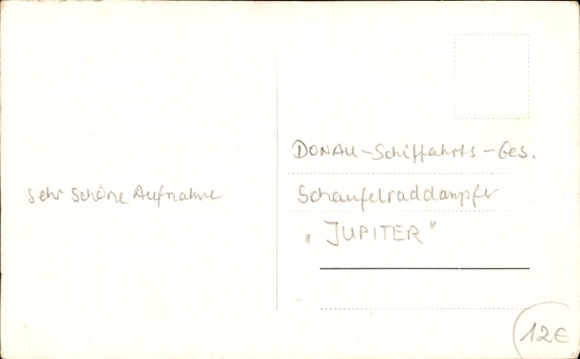 sehr schöne Aufnahme
DONAU-Schiffahrts-Ges.
Schaufelraddampfer
„JUPITER"
12€